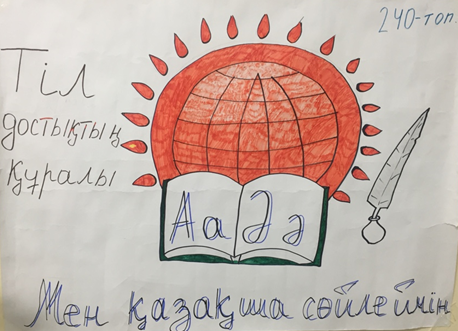 240-топ
Тіл
достықтың
құралы
Аа Әә
Мен қазақша сөйлеймін